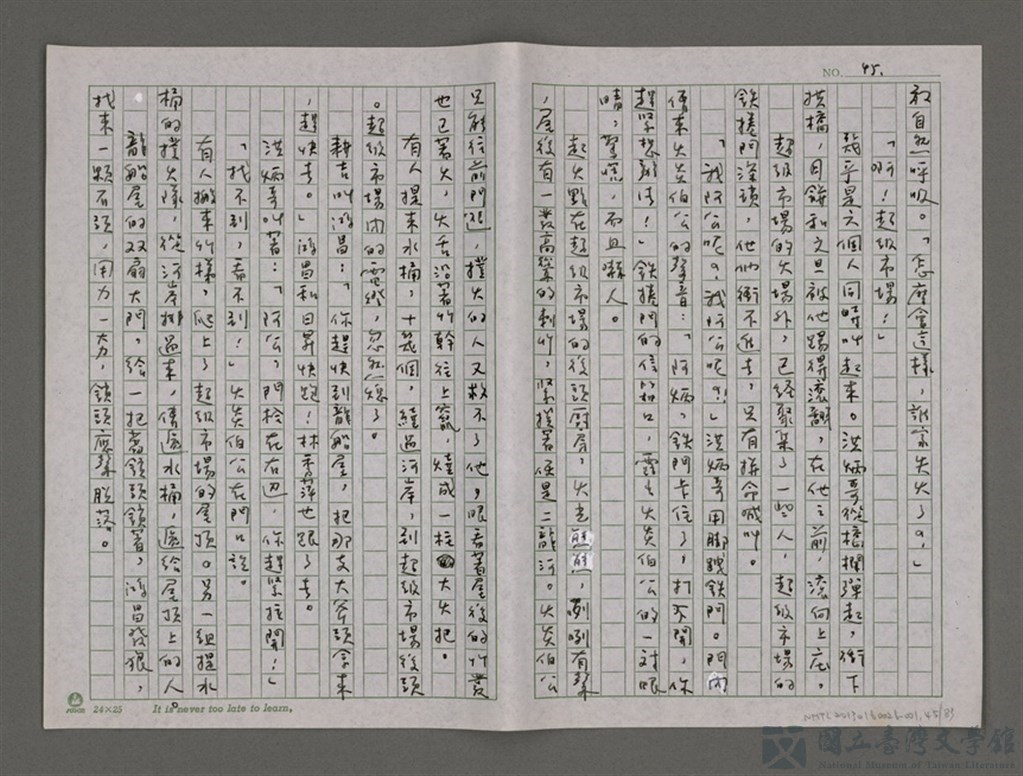 NO. 45.
和自然呼吸。「怎麼會這樣，誰家失火了？」
「啊！超級市場！」
幾乎是六個人同時叫起來。洪炳哥從橋欄彈起，衝下
拱橋，月餅和文旦被他踢得滾翻，在他之前，滾向上庄。
超級市場的火場外，已經聚集了一些人，超級市場的
鐵捲門深鎖，他們衝不進去，只有拼命喊叫。
「我阿公呢？我阿公呢？！」洪炳哥用腳踹鐵門。門內
傳來火炎伯公的聲音：「阿炳，鐵門卡住了，打不開，你
趕緊想辦法！」鐵捲門的信箱口，露出火炎伯公的一對眼
睛，驚慌，而且嚇人。
起火點在超級市場的後頭廚房，火光熊熊，咧咧有聲
，屋後有一叢高聳的刺竹，緊接著便是二龍河。火炎伯公
只能往前門逃，撲火的人又救不了他，眼看著屋後的竹叢
也已著火，火舌沿著竹幹往上竄，燒成一柱大火把。
有人提來水桶，十幾個，繞過河岸，到超級市場後頭
。超級市場內的電燈，忽然熄了。
耕吉叫鴻昌：「你趕快到龍船屋，把那支大斧頭拿來
，趕快去。」鴻昌和日昇快跑！林秀萍也跟了去。
洪炳哥叫著：「阿公，門栓在右邊，你趕緊拉開！」
「找不到，看不到！」火炎伯公在門口說。
有人搬來竹梯，爬上了超級市場的屋頂。另一組提水
桶的撲火隊，從河岸排過來，傳遞水桶，遞給屋頂上的人。
龍船屋的双扇大門，給一把舊鎖頭鎖著，鴻昌發狠，
找來一顆石頭，用力一夯，鎖頭應聲脫落。
24×25 It is never too late to learn.
NMTL20190160026-001,45/83
國立臺灣文學館
National Museum of Taiwan Literature